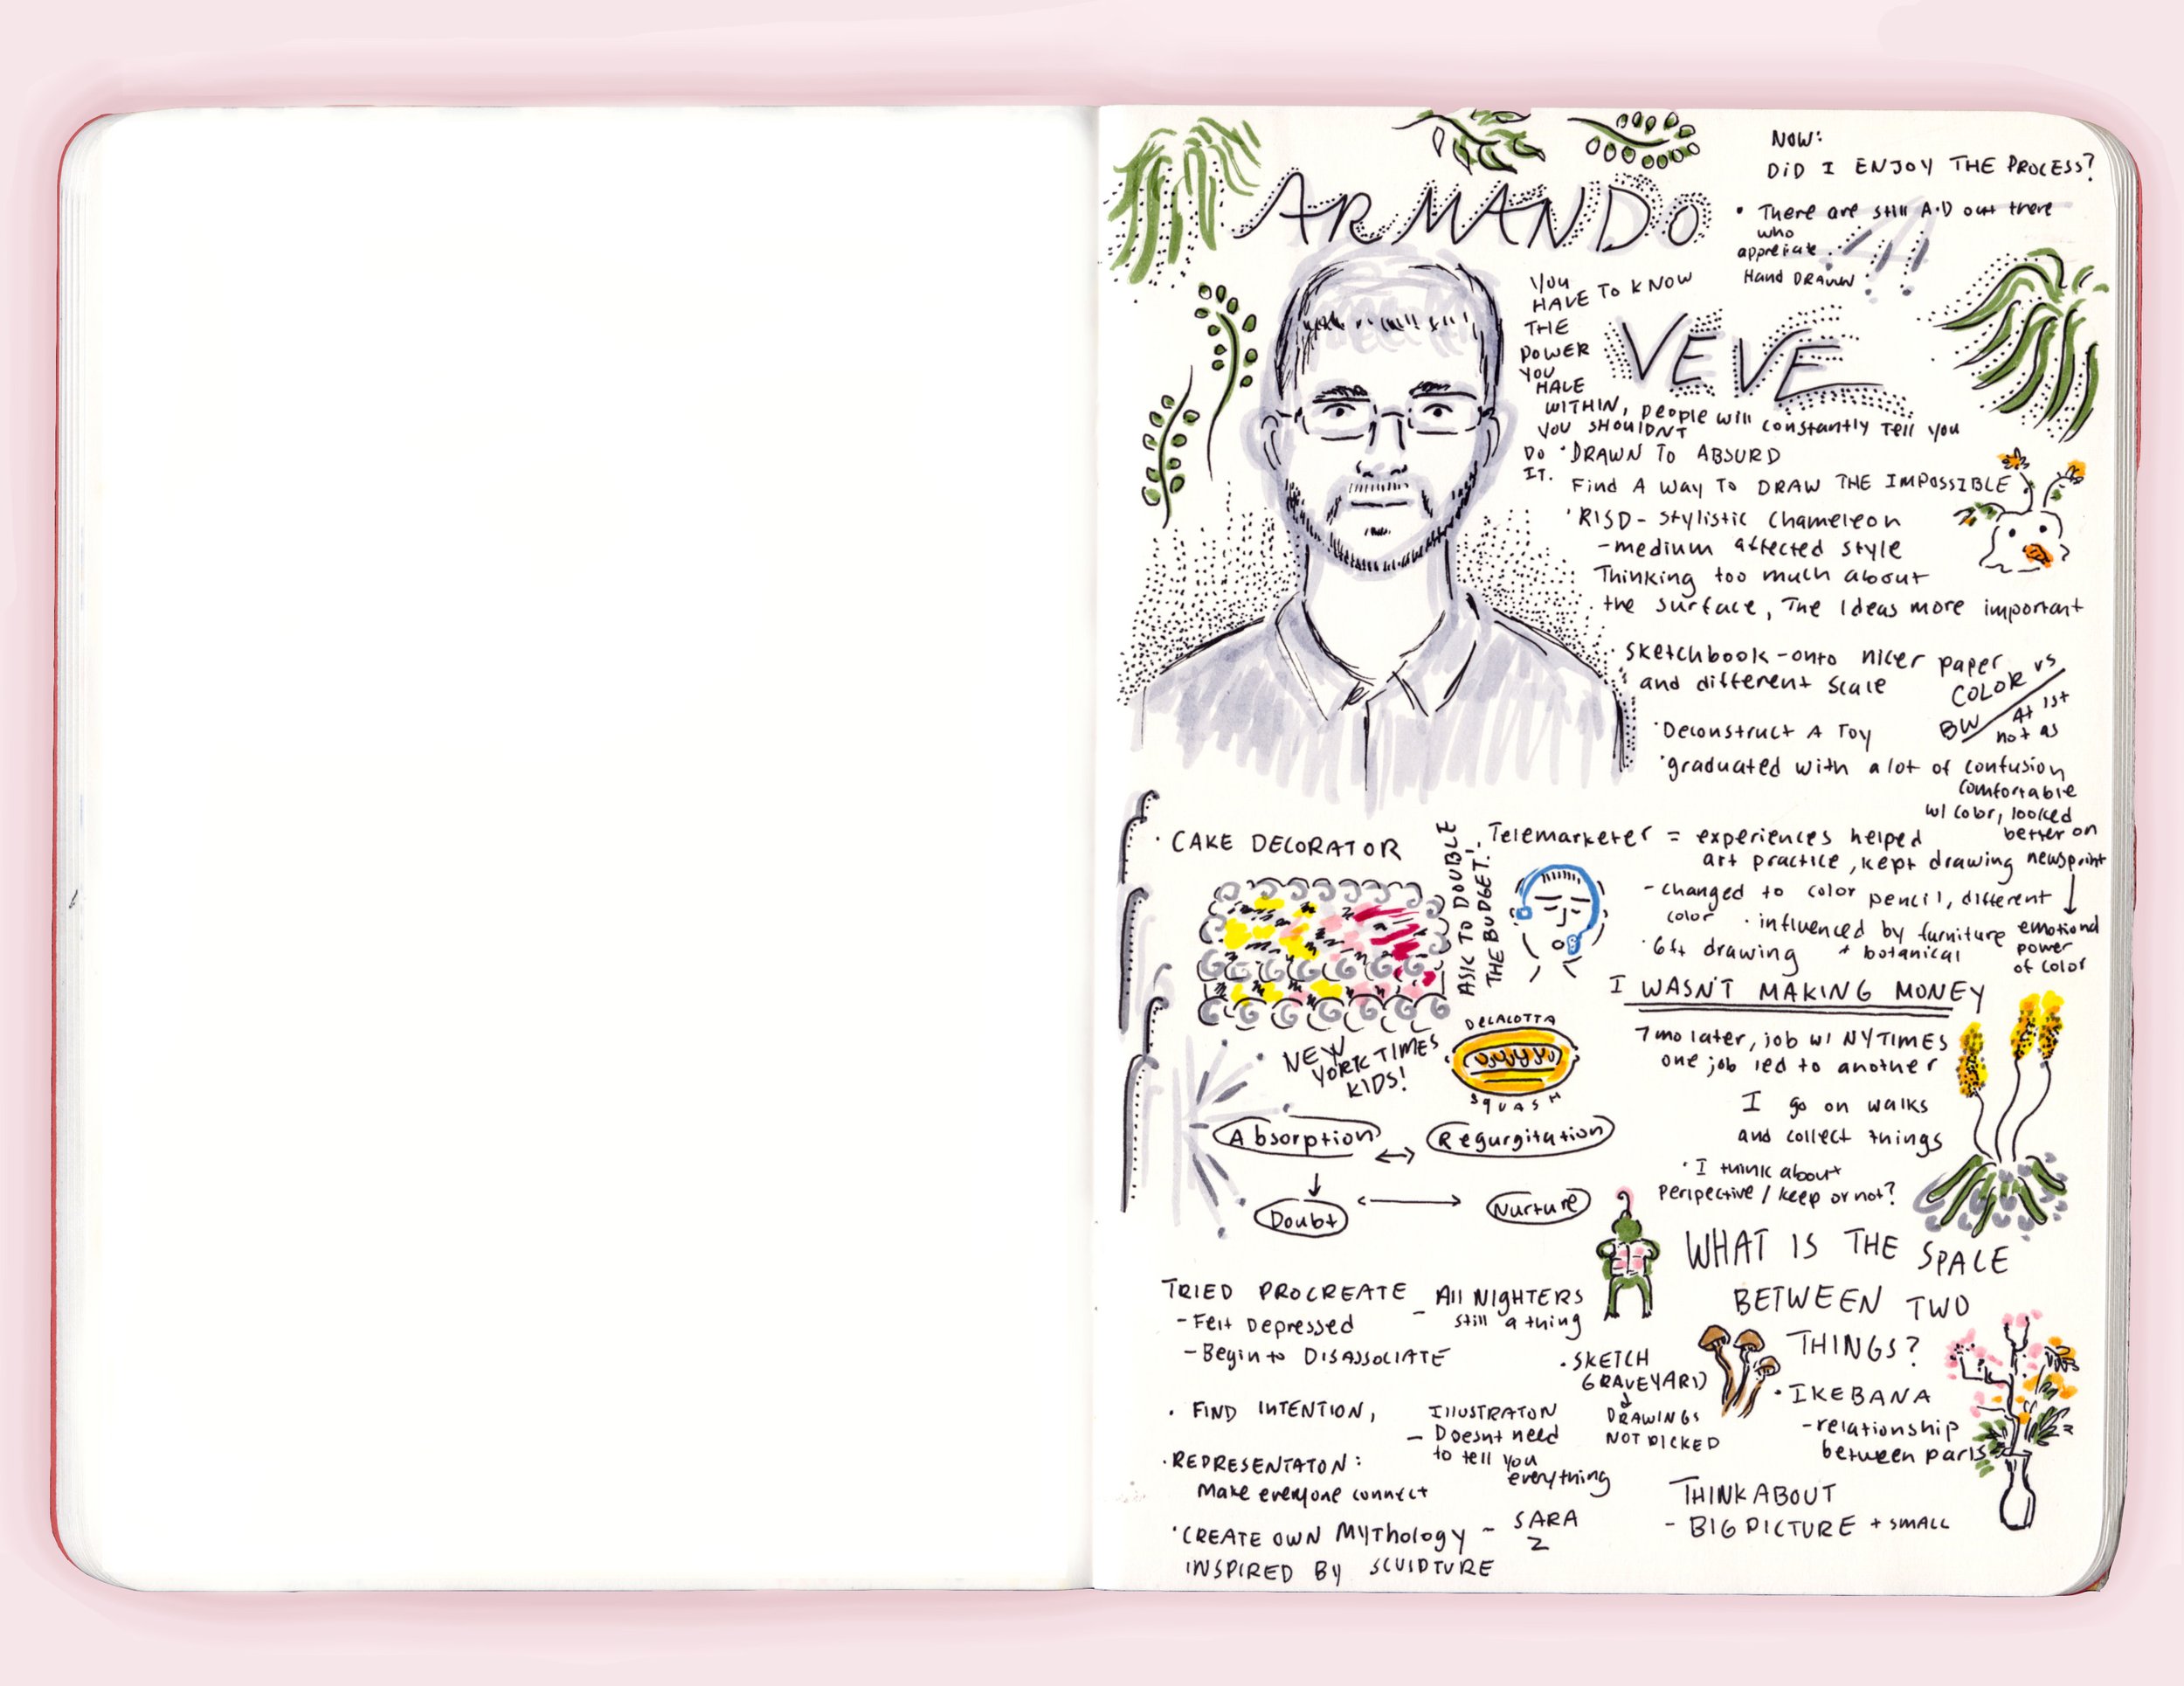 NOW:
DID I ENJOY THE PROCESS?
ARMANDO
• There are still A.D out there
who
appreiate
Hand DRAWN
VEVE
YOU
HAVE TO KNOW
THE
POWER
YOU
HAVE
WITHIN, people will constantly Tell you
YOU SHOULDNT
DO
IT.
• DRAWN TO ABSURD
Find A Way To DRAW THE IMPOSSIBLE
• RISD - Stylistic Chameleon
- medium affected style
Thinking too much about
the surface, The Ideas more important
• Sketchbook - onto nicer paper
and different scale
COLOR vs
BW
At 1st
not as
comfortable
w/ color, looked
better on
newsprint
emotional
power
of color
• Deconstruct A Toy
• graduated with alot of confusion
• CAKE DECORATOR
ASK TO DOUBLE
THE BUDGET!
• Telemarketer = experiences helped
art practice, kept drawing
- changed to color pencil, different
color
• influenced by furniture
+ botanical
• 6ft drawing
I WASN'T MAKING MONEY
7 mo later, job w/ NYTIMES
one job led to another
NEW
YORK TIMES
KIDS!
DELALOTTA
SQUASH
I go on walks
and collect things
• I think about
Perspective / keep or not?
Absorption
Regurgitation
Doubt
Nurture
WHAT IS THE SPACE
BETWEEN TWO
THINGS?
TRIED PROCREATE
- Felt Depressed
- Begin to DISASSOCIATE
- All NIGHTERS
still a thing
• SKETCH
GRAVEYARD
DRAWINGS
NOT PICKED
• IKEBANA
- relationship
between parts
• FIND INTENTION,
ILLUSTRATON
- Doesnt need
to tell you
everything
• REPRESENTATON:
Make everyone connect
THINK ABOUT
- BIG PICTURE + SMALL
• CREATE OWN MYTHOLOGY - SARA
Z
INSPIRED BY SCULPTURE